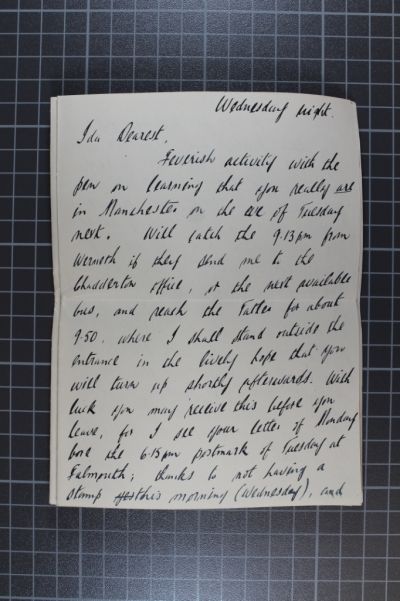 Wednesday night.
Ida Dearest,
Feverish activity with the
pen on learning that you really are
in Manchester on the eve of Tuesday
next. Will catch the 9.13pm from
Werneth if they send me to the
Chadderton office, or the next available
bus, and reach the Tatler for about
9.50. where I shall stand outside the
entrance in the lively hope that you
will turn up shortly afterwards. With
luck you may receive this before you
leave, for I see your letter of Monday
bore the 6.15pm postmark of Tuesday at
Falmouth; thanks to not having a
stamp this morning (Wednesday), and